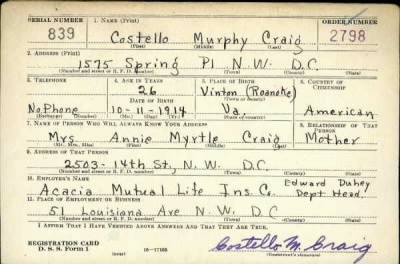 SERIAL NUMBER 1. NAME (Print) ORDER NUMBER
839 Costello Murphy Craig 2798
(First) (Middle) (Last)
2. ADDRESS (Print)
1575 Spring Pl N.W. D.C.
(Number and street or R. F. D. number) (Town) (County) (State)
3. TELEPHONE 4. AGE IN YEARS 5. PLACE OF BIRTH 6. COUNTRY OF CITIZENSHIP
26 Vinton (Roanoke)
DATE OF BIRTH (Town or county)
No Phone 10-11-1914 Va American
(Exchange) (Number) (Mo.) (Day) (Yr.) (State or country)
7. NAME OF PERSON WHO WILL ALWAYS KNOW YOUR ADDRESS 8. RELATIONSHIP OF THAT PERSON
Mrs. Annie Myrtle Craig Mother
(Mr., Mrs., Miss) (First) (Middle) (Last)
9. ADDRESS OF THAT PERSON
2503-14th St, N.W. D.C.
(Number and street or R. F. D. number) (Town) (County) (State)
10. EMPLOYER'S NAME Edward
Acacia Mutual Life Ins. Co. Dept Head.
11. PLACE OF EMPLOYMENT OR BUSINESS
51 Louisiana Ave N.W. D.C
(Number and street or R. F. D. number) (Town) (County) (State)
I AFFIRM THAT I HAVE VERIFIED ABOVE ANSWERS AND THAT THEY ARE TRUE.
REGISTRATION CARD
D. S. S. Form 1 16-17105 Costello M. Craig
(Registrant's signature)